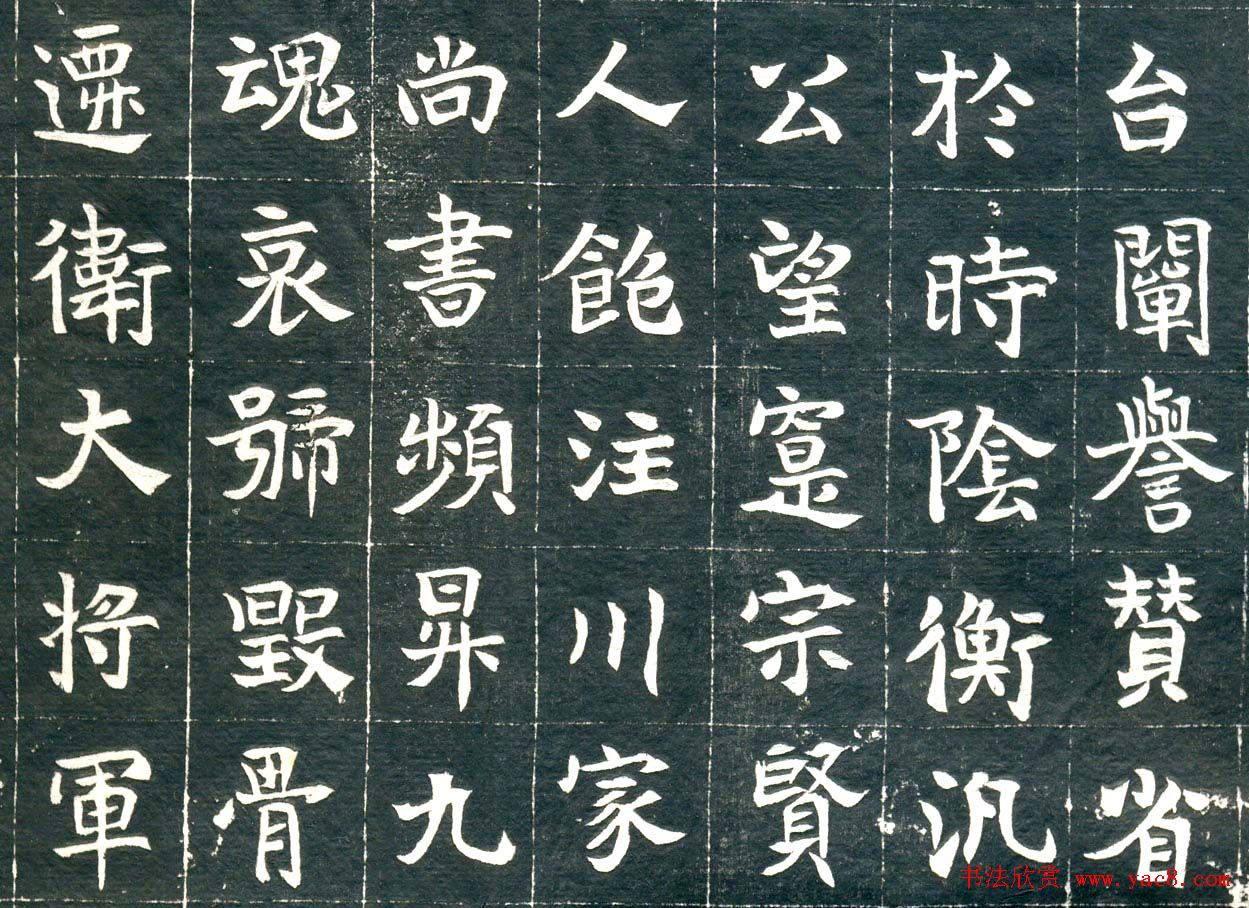 台闡譽贊省
於時陰衡汎
公望寔宗賢
人飽注川家
尚書頻昇九
魂哀號毀骨
遷衛大将軍
书法欣赏 www.yac8.com